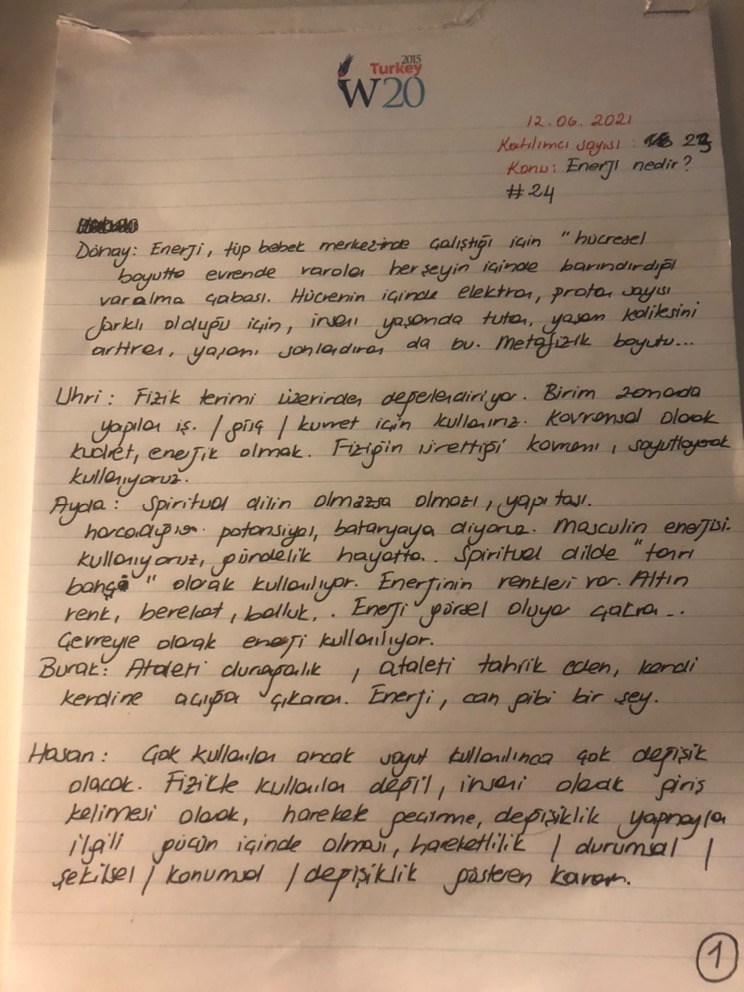 2015
Turkey
W20
12.06.2021
Katılımcı sayısı : 23
Konu: Enerji nedir?
#24
Dönay: Enerji, tüp bebek merkezinde çalıştığı için "hücresel
boyutta evrende varolan herşeyin içinde barındırdığı
varolma çabası. Hücrenin içinde elektron, proton sayısı
farklı olduğu için, insanı yaşamda tutan, yaşam kalitesini
arttıran, yaşamı sonlandıran da bu. Metafizik boyutu...
Uhri : Fizik terimi üzerinden değerlendiriyor. Birim zamanda
yapılan iş. / güç / kuvvet için kullanırız. Kavramsal olarak
kudret, enerjik olmak. Fiziğin ürettiği kavramı, soyutlayarak
kullanıyoruz.
Ayda : Spiritual dilin olmazsa olmazı, yapı taşı.
harcadığımız potansiyel, bataryaya diyoruz. Masculin enerjisi.
kullanıyoruz, gündelik hayatta.. Spiritual dilde "tanrı
" olarak kullanılıyor. Enerjinin renkleri var. Altın
renk, bereket, bolluk, . Enerji görsel oluyor çakra...
Çevreyle olarak enerji kullanılıyor.
Burak: Ataleti durağanlık , ataleti tahrik eden, kendi
kendine açığa çıkaran. Enerji, can gibi bir şey.
Hasan : Çok kullanılan ancak soyut kullanılınca çok değişik
olacak. Fizikle kullanılan değil, insani olarak giriş
kelimesi olarak, hareket geçirme, değişiklik yapmayla
ilgili gücün içinde olması, hareketlilik / durumsal /
şekilsel / konumsal / değişiklik gösteren kavram.
1